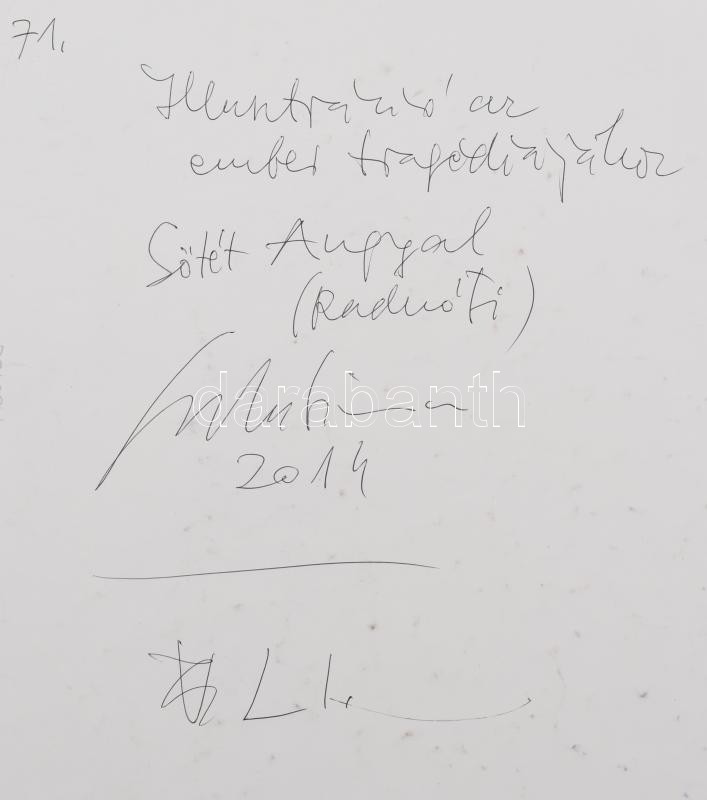 71.
Illusztráció az
ember tragédiájához
Sötét Angyal
(Radnóti)
darabanth
2014